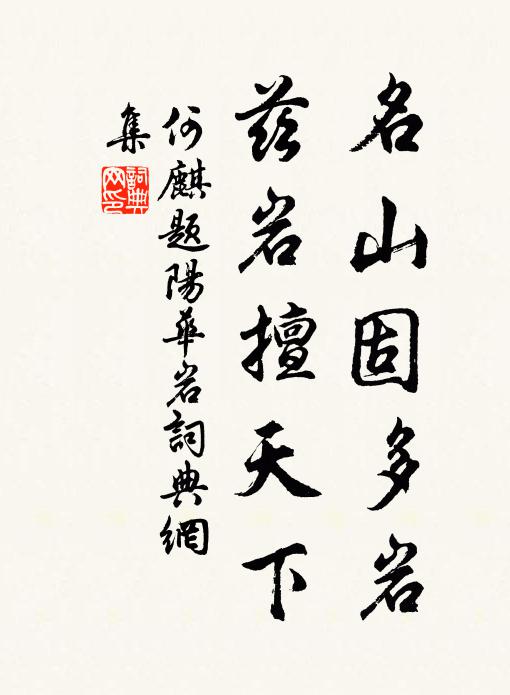 名山固多岩
兹岩擅天下
何麒题陽華岩詞典網
集
詞典網印